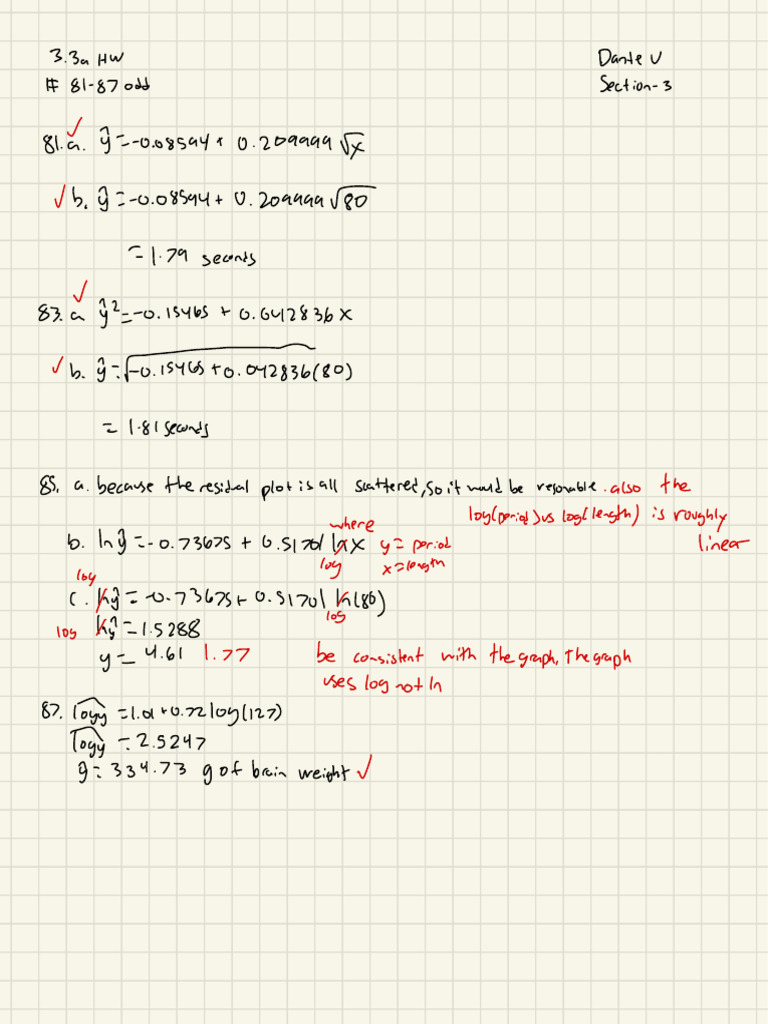 3.3a HW Dante V
# 81-87 odd Section-3
✓
81. a. ŷ = -0.08594 + 0.209999 √x
✓ b. ŷ = -0.08594 + 0.209999 √80
= 1.79 seconds
✓
83. a ŷ² = -0.15465 + 0.042836 x
✓ b. ŷ = √-0.15465 + 0.042836(80)
= 1.81 seconds
85. a. because the residual plot is all scattered, so it would be resonable. also the
log(period) vs log(length) is roughly
linear
where
b. ln ŷ = -0.73675 + 0.51701 ln x y = period
log x = length
log
c. ln ŷ = -0.73675 + 0.51701 ln(80)
log
log ln ŷ = 1.5288
y = 4.61 1.77 be consistent with the graph, the graph
uses log not ln
87. log y = 1.01 + 0.72 log(127)
log y = 2.5247
ŷ = 334.73 g of brain weight ✓